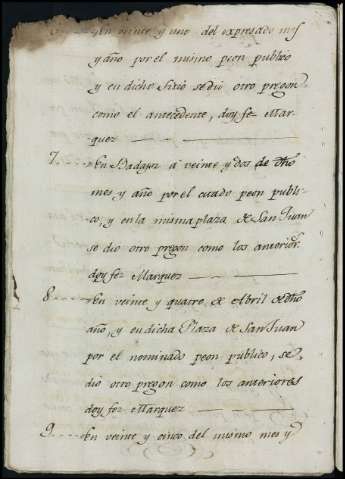 En veinte y uno del expresado mes
y año por el mismo peon publico
y en dicho sitio se dió otro pregon
como el antecedente, doy feé Mar-
quez
7.... En Badajoz á veinte y dos de dho
mes y año por el citado peon publi-
co, y en la misma plaza de San Juan
se dio otro pregon como los anteriors.
doy feé Marquez
8.... En veinte y quatro de Abril de dho
año, y en dicha Plaza de San Juan
por el nominado peon publico, se
dio otro pregon como los anteriores
doy feé Marquez
9.... En veinte y cinco del mismo mes y